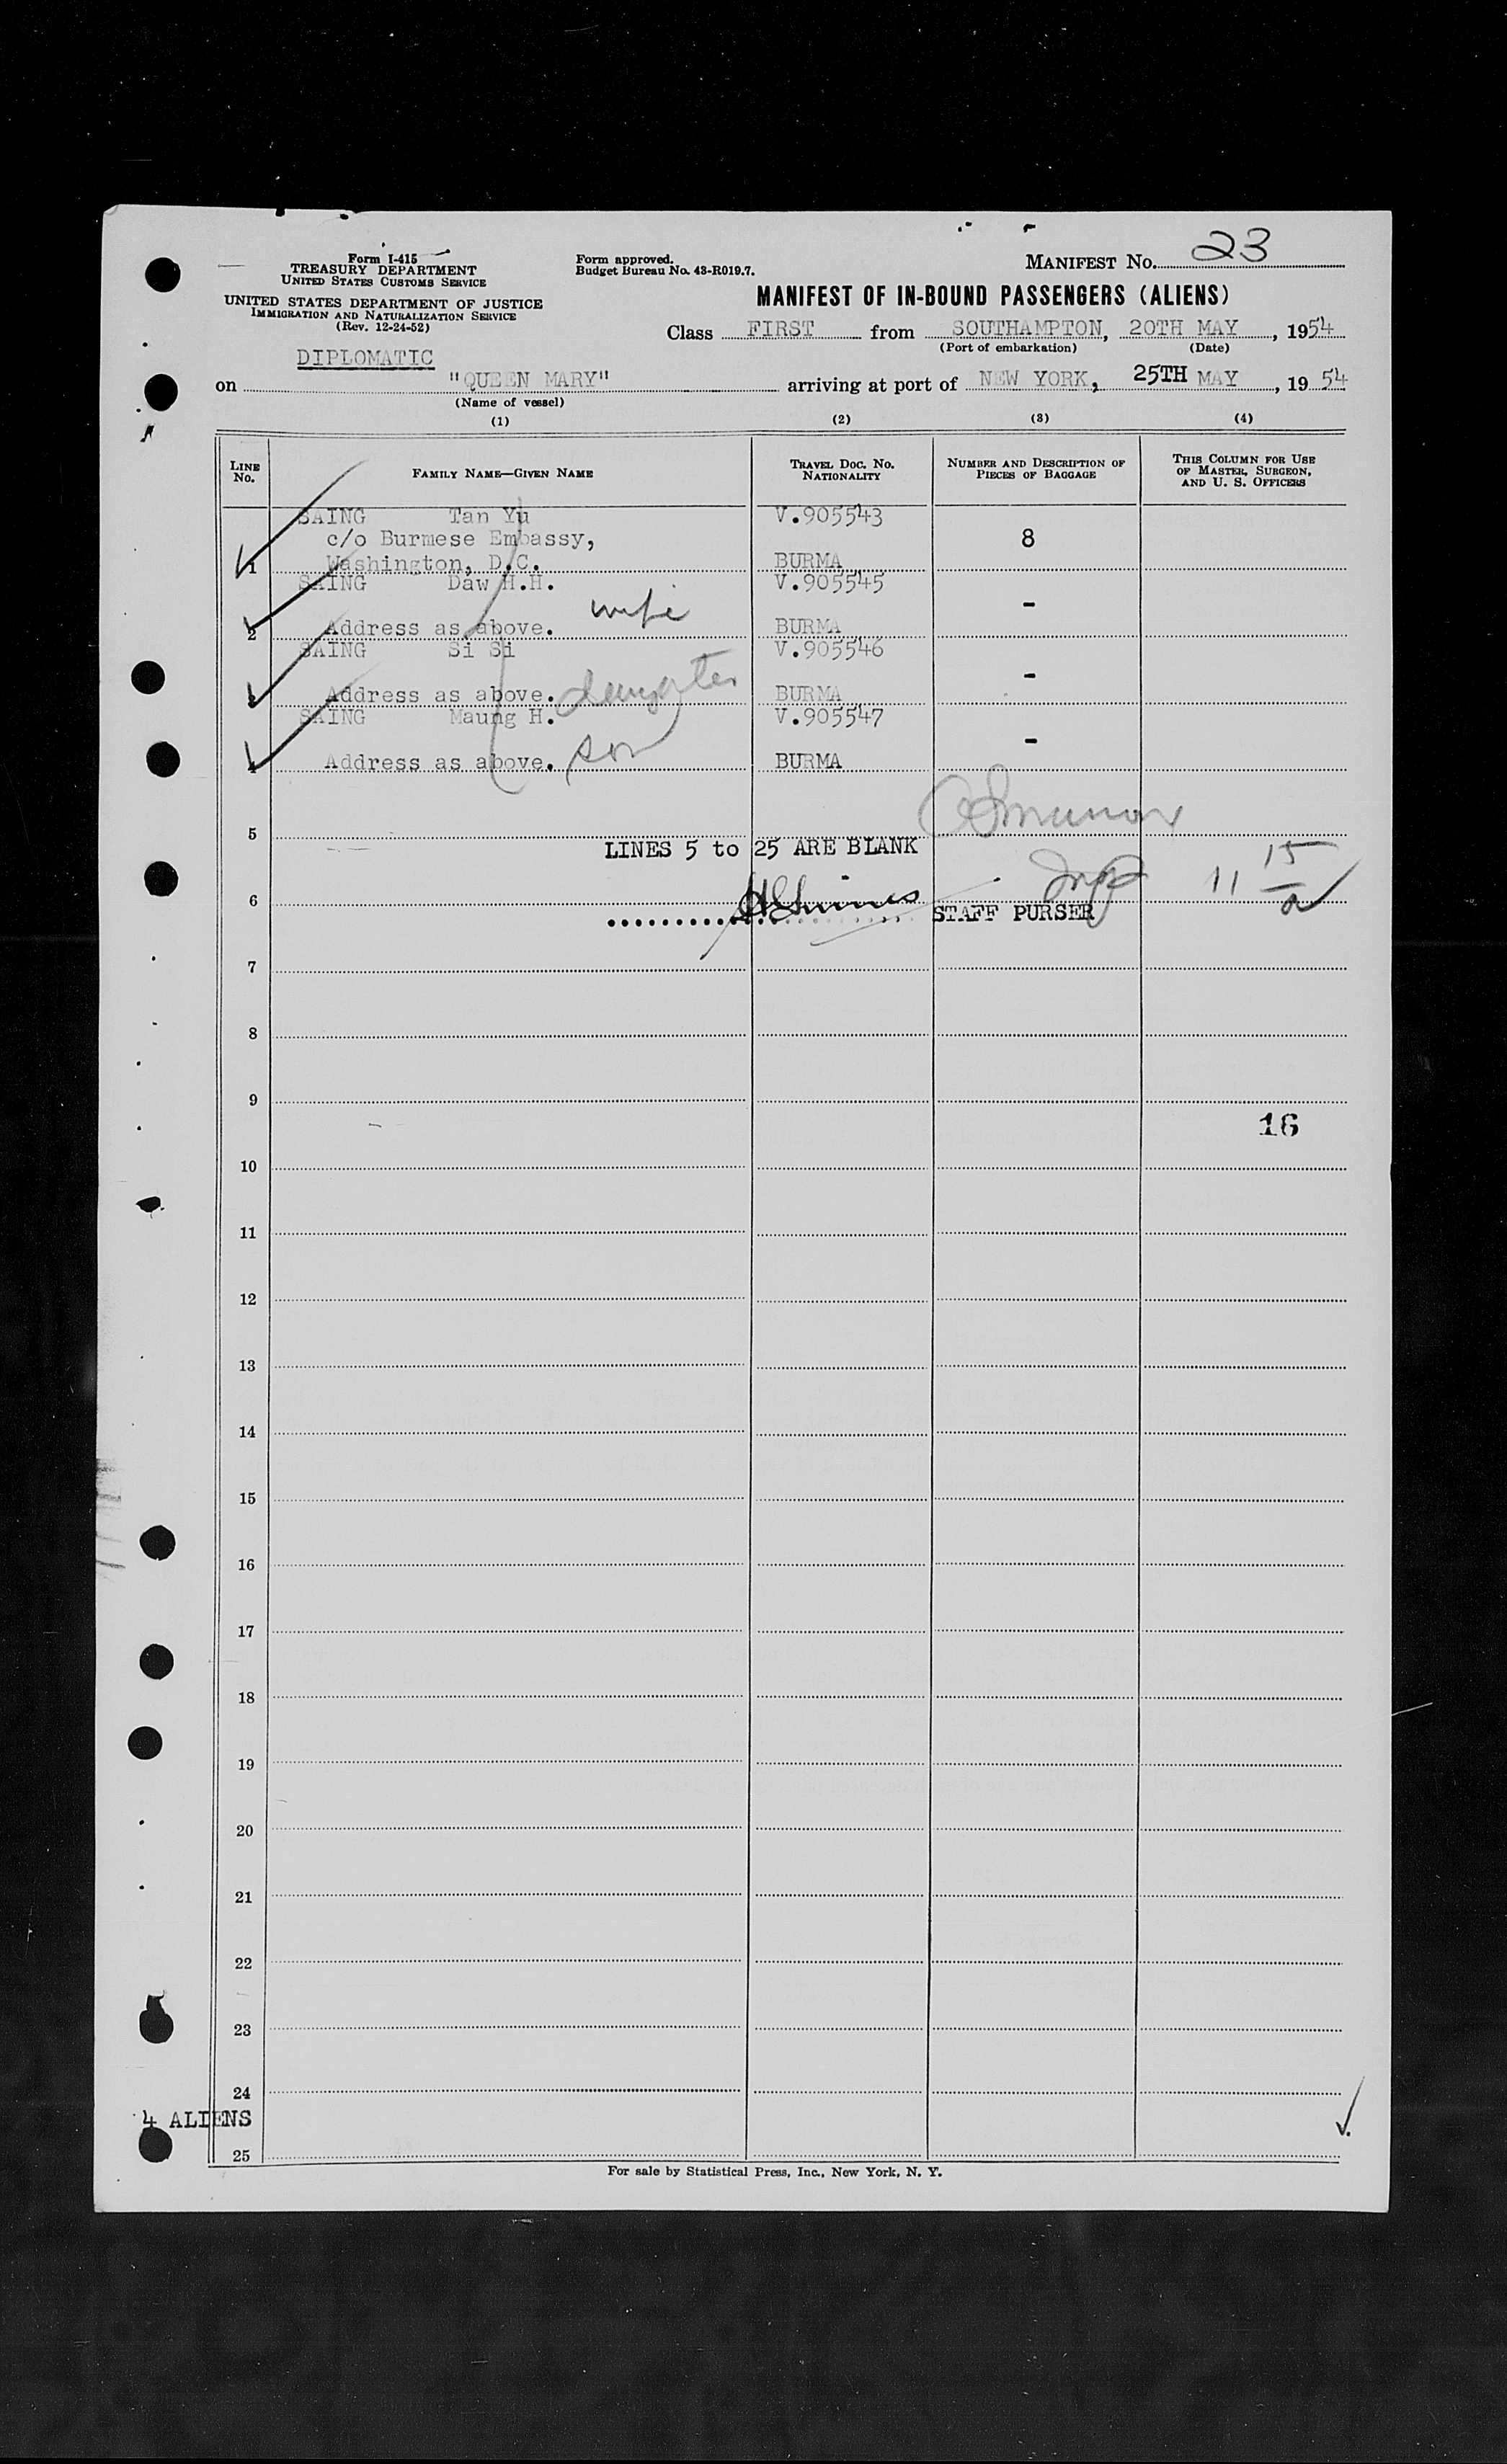 Form I-415
TREASURY DEPARTMENT
UNITED STATES CUSTOMS SERVICE
UNITED STATES DEPARTMENT OF JUSTICE
IMMIGRATION AND NATURALIZATION SERVICE
(Rev. 12-24-52)
Form approved.
Budget Bureau No. 43-R019.7.
MANIFEST NO. 23
MANIFEST OF IN-BOUND PASSENGERS (ALIENS)
Class FIRST from SOUTHAMPTON, 20TH MAY, 1954
(Port of embarkation) (Date)
DIPLOMATIC
on "QUEEN MARY" arriving at port of NEW YORK, 25TH MAY, 1954
(Name of vessel)
(1) (2) (3) (4)
LINE NO. FAMILY NAME—GIVEN NAME TRAVEL DOC. NO. NATIONALITY NUMBER AND DESCRIPTION OF PIECES OF BAGGAGE THIS COLUMN FOR USE OF MASTER, SURGEON, AND U. S. OFFICERS
SAING Tan Yu V.905543
c/o Burmese Embassy, 8
1 Washington, D.C. BURMA
SAING Daw H.H. V.905545
wife -
2 Address as above. BURMA
SAING Si Si V.905546
3 Address as above. daughter BURMA -
SAING Maung H. V.905547
4 Address as above. son BURMA -
5
LINES 5 to 25 ARE BLANK
11 15/a
6
STAFF PURSER
7
8
9
16
10
11
12
13
14
15
16
17
18
19
20
21
22
23
24
4 ALIENS
25
For sale by Statistical Press, Inc., New York, N. Y.